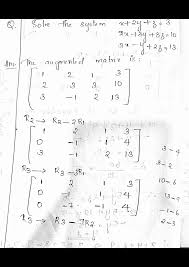 Q. Solve the system x+2y+z=3
2x+3y+3z=10
3x-y+2z=13
Ans: The augmented matrix is:
1 2 1 3
2 3 3 10
3 -1 2 13
R2 → R2-2R1
1 2 1 3
0 -1 1 4
3 -1 2 13
R3 → R3-3R1
1 2 1 3
0 -1 1 4
0 -7 -1 4
R3 → R3-7R2
3-4
3-2
10-6
13-9
-1-6
2-3